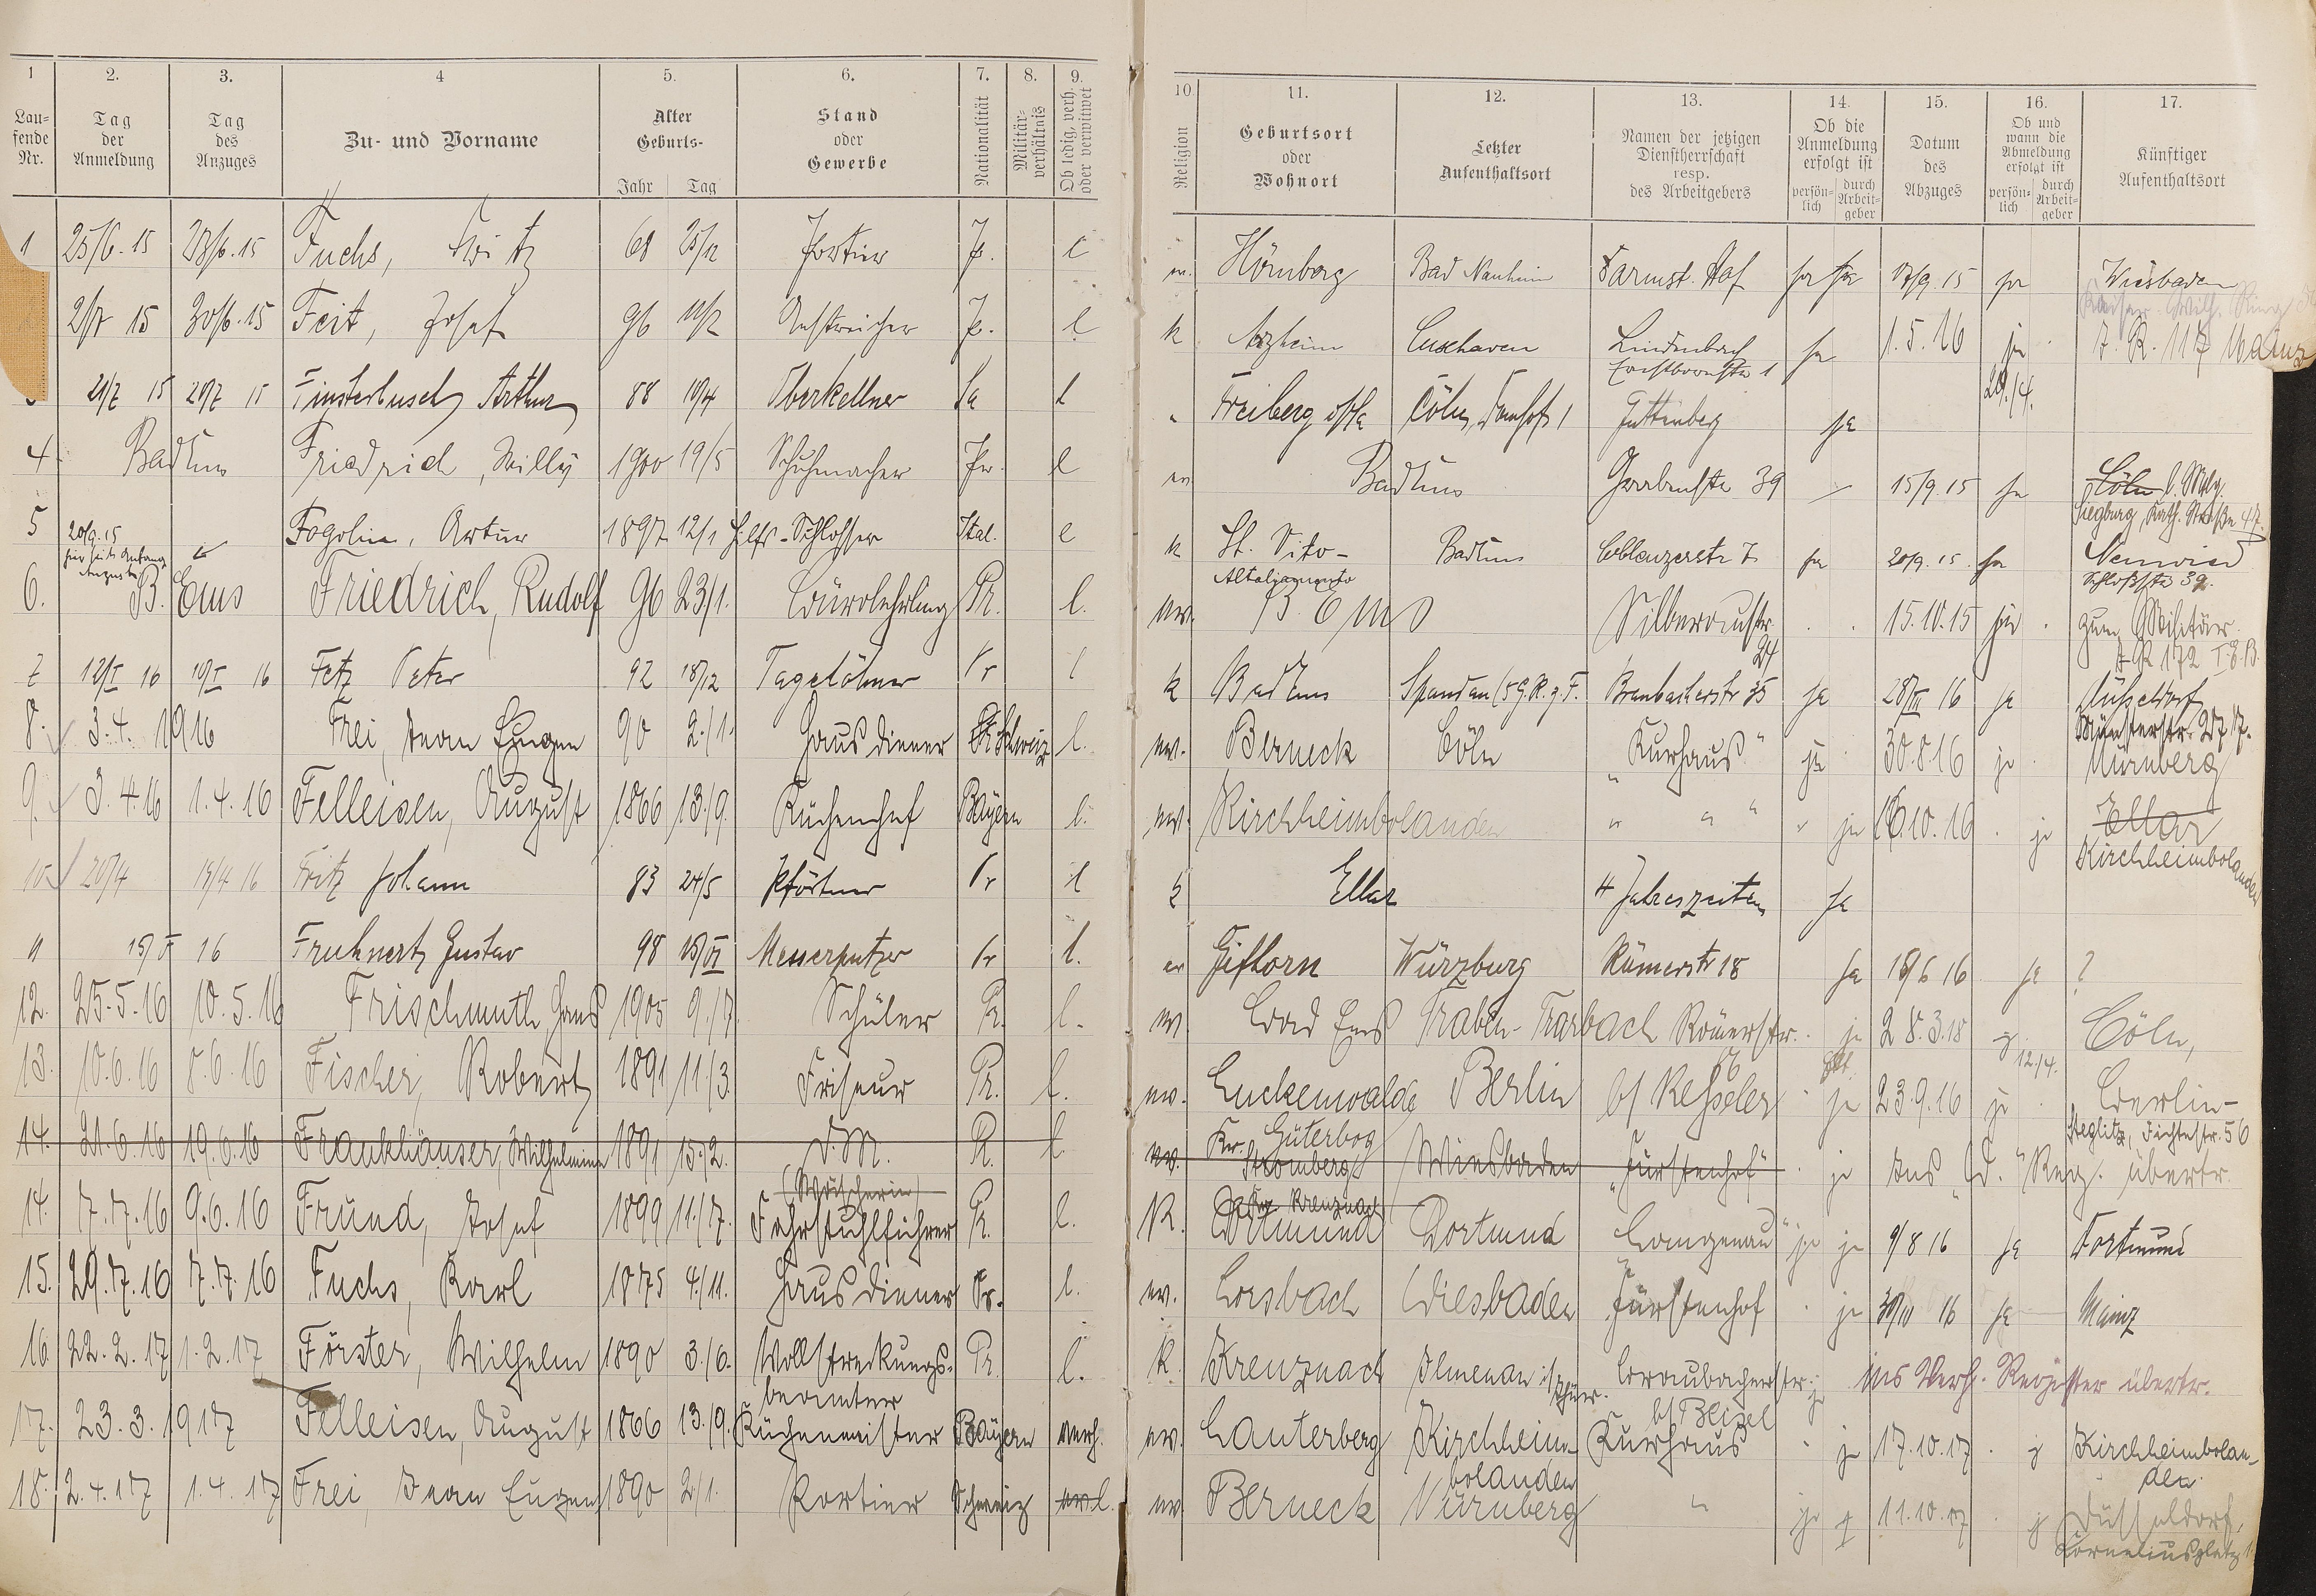 1 2. 3. 4 5. 6. 7. 8. 9.
Lau= fende Nr. Tag der Anmeldung Tag des Anzuges Zu- und Vorname Alter Geburts- Jahr Tag Stand oder Gewerbe Nationalität Militär- verhältnis Ob ledig, verh. oder verwitwet
1 25/6. 15 23/6. 15 Fuchs, Fritz 68 25/12 Portier P. l
30/6. 15 Feit, Josef 96 Anstreicher P. l
21/7 15 20/7 15 Finsterbusch Arthur 88 10/4 Oberkellner Sa l
4 Bad Ems Friedrich, Willy 1900 19/5 Schuhmacher Pr. l
5 20/9. 15 hier seit Anfang August Fogolin, Artur 1897 12/1 Hilfs-Schlosser Ital. l
6. B. Ems Friedrich, Rudolf 96 23/1. Bürolehrling Pr. l.
7 12/I 16 10/I 16 Fetz Peter 92 18/12 Tagelöhner Pr l
8. 3. 4. 1916 Frei, Jean Eugen 90 2./1. Hausdiener Schweiz l.
9. 3. 4. 16 1. 4. 16 Felleisen, August 1866 13./9. Küchenchef Bayern l.
10 20/4 19/4 16 Fritz Johann 83 24/5 Pförtner Pr l
11 15/V 16 Fruhnert, Gustav 98 Messerputzer Pr l.
12. 25. 5. 16 10. 5. 16 Frischmuth, Hans 1905 9./7. Schüler Pr. l.
13. 10. 6. 16 8. 6. 16 Fischer, Robert 1891 11./3. Friseur Pr. l.
14. 21. 6. 16 19. 6. 16 Frankhäuser, Wilhelmine 1891 15./2. D. M. (Wäscherin) Pr. l.
14. 7. 7. 16 9. 6. 16 Fründ, Josef 1899 11./7. Fahrstuhlführer Pr. l.
15. 29. 7. 16 7. 7. 16 Fuchs, Karl 1875 4./11. Hausdiener Pr. l.
16 22. 2. 17 1. 2. 17 Förster, Wilhelm 1890 3./6. Vollstreckungs- beamter Pr. l.
17. 23. 3. 1917 Felleisen, August 1866 13./9. Küchenmeister Bayern verh.
18. 2. 4. 17 1. 4. 17 Frei, Jean Eugen 1890 2/1. Portier Schweiz l.
10 11. 12. 13. 14. 15. 16. 17.
Religion Geburtsort oder Wohnort Letzter Aufenthaltsort Namen der jetzigen Dienstherrschaft resp. des Arbeitgebers Ob die Anmeldung erfolgt ist persön- lich durch Arbeit- geber Datum des Abzuges Ob und wann die Abmeldung erfolgt ist persön- lich durch Arbeit- geber Künftiger Aufenthaltsort
Bad Nauheim Darmst. Hof ja 17/9. 15 ja Wiesbaden
Kaiser Wilh. Ring
k Arzheim Cuxhaven Lindenbach ja 1. 5. 16 ja 29./4. I. R. 117 Mainz
Freiberg i/Sa Cöln, Domhof 1 Guttenberg ja
ev Bad Ems Grabenstr 39 15/9. 15 ja Cöln
Siegburg, Kath. Straße 47.
k St. Vito- Bad Ems Coblenzerstr 7 ja 20/9. 15. ja Neuwied
Schloßstr 39.
ev. B. Ems Silberaustr. 24 15. 10. 15 ja zum Militär
I. R 172 I. E. B.
k Bad Ems Spandau (5 G. R. z. F. Braubacherstr 35 ja 28/III 16 ja Düsseldorf
Münsterstr. 277.
ev. Berneck Cöln „Kurhaus“ ja 30. 8. 16 ja Nürnberg
ev. Kirchheimbolanden " " " ja 16. 10. 16 ja Ellar
Kirchheimbolanden
k Ellar 4 Jahreszeiten ja
ev Gifhorn Würzburg Römerstr 18 ja 18/6 16 ja ?
ev. Bad Ems Traben-Trarbach Römerstr. 56 ja 28. 3. 18 ja 12./4. Cöln,
ev. Luckenwalde Berlin b/ Kesseler ja 23. 9. 16 ja Berlin-
Steglitz, Fichtestr. 56
ev. Stromberg Kr. Kreuznach Wiesbaden „Fürstenhof“ ja Ins „ " Reg. übertr.
K. Dortmund Langenau ja ja 9/8 16 ja Dortmund
ev. Lorsbach Wiesbaden Fürstenhof ja 16 ja Mainz
K. Kreuznach Ilmenau i/ Thür. Braubacherstr. b/ Beisel ja ins Verh. Register übertr.
ev. Lauterberg Kirchheim- bolanden Kurhaus ja 17. 10. 17 ja Kirchheimbolan-
den
ev. Berneck Nürnberg " ja 11. 10. 17 ja Düsseldorf,
Corneliusplatz 1